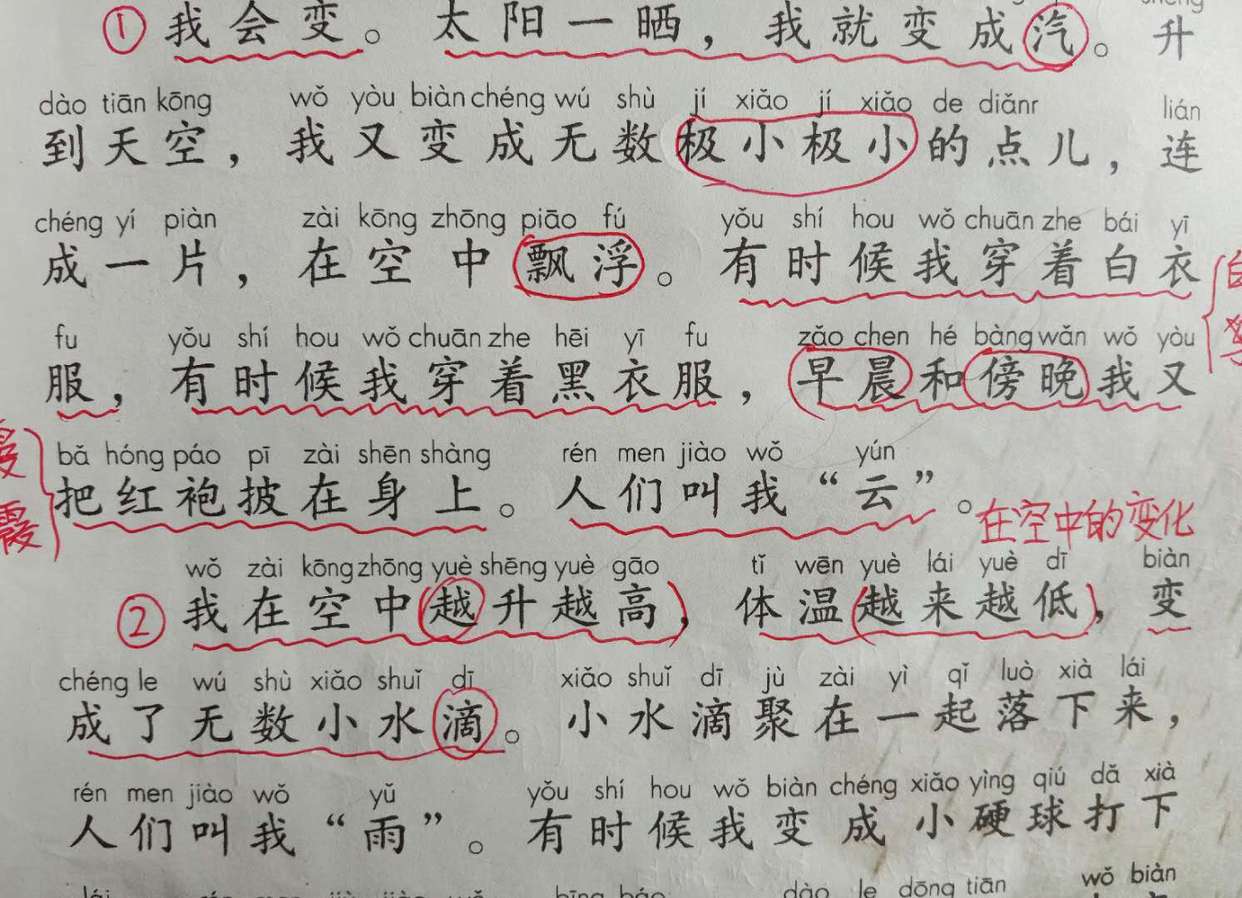 ①我会变。太阳一晒，我就变成汽。升
dào tiān kōng wǒ yòu biàn chéng wú shù jí xiǎo jí xiǎo de diǎnr lián
到天空，我又变成无数极小极小的点儿，连
chéng yí piàn zài kōng zhōng piāo fú yǒu shí hou wǒ chuān zhe bái yī
成一片，在空中飘浮。有时候我穿着白衣
fu yǒu shí hou wǒ chuān zhe hēi yī fu zǎo chen hé bàng wǎn wǒ yòu
服，有时候我穿着黑衣服，早晨和傍晚我又
bǎ hóng páo pī zài shēn shàng rén men jiào wǒ yún
霞
把红袍披在身上。人们叫我“云”。
在空中的变化
wǒ zài kōng zhōng yuè shēng yuè gāo tǐ wēn yuè lái yuè dī biàn
②我在空中越升越高，体温越来越低，变
chéng le wú shù xiǎo shuǐ dī xiǎo shuǐ dī jù zài yì qǐ luò xià lái
成了无数小水滴。小水滴聚在一起落下来，
rén men jiào wǒ yǔ yǒu shí hou wǒ biàn chéng xiǎo yìng qiú dǎ xià
人们叫我“雨”。有时候我变成小硬球打下
bīng báo dào le dōng tiān wǒ biàn